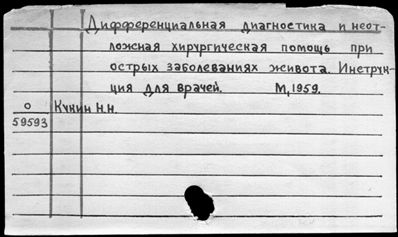 Дифференциальная диагностика и неот-
ложная хирургическая помощь при
острых заболеваниях живота. Инструк-
ция для врачей. М, 1959.
О Кукин Н.Н.
59593